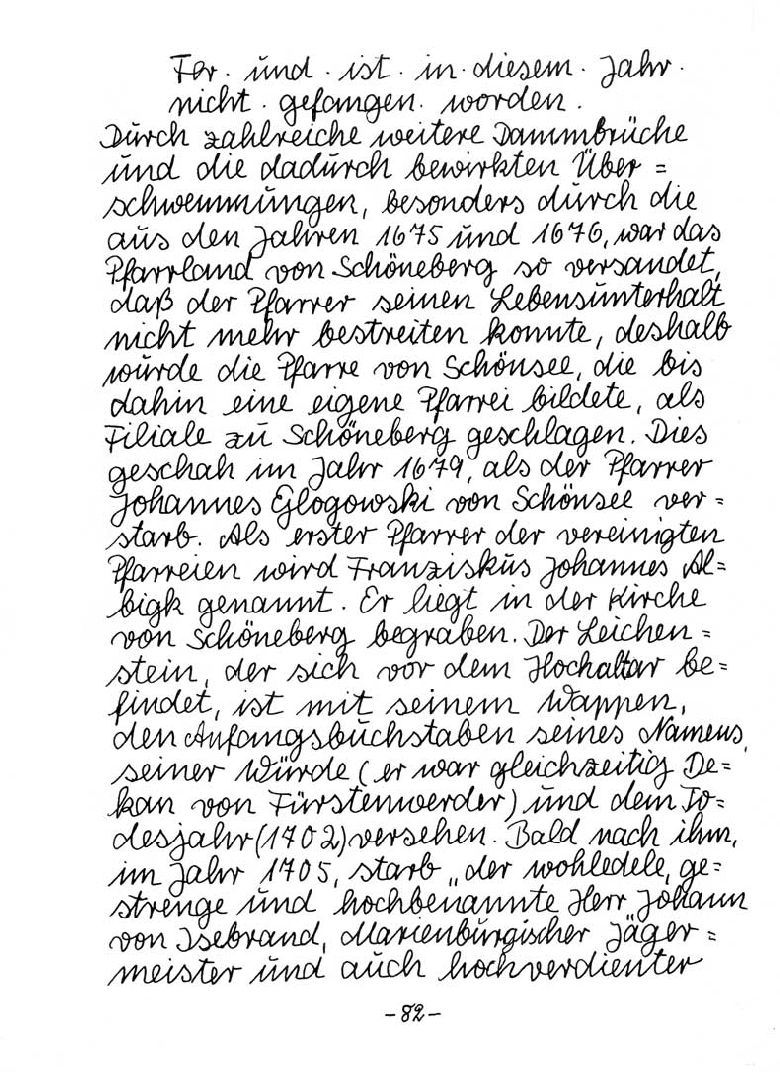 Fer. und. ist. in. diesem. Jahr.
nicht. gefangen. worden.
Durch zahlreiche weitere Dammbrüche
und die dadurch bewirkten Über=
schwemmungen, besonders durch die
aus den Jahren 1675 und 1676, war das
Pfarrland von Schöneberg so versandet,
daß der Pfarrer seinen Lebensunterhalt
nicht mehr bestreiten konnte, deshalb
wurde die Pfarre von Schönsee, die bis
dahin eine eigene Pfarrei bildete, als
Filiale zu Schöneberg geschlagen. Dies
geschah im Jahr 1679, als der Pfarrer
Johannes Glogowski von Schönsee ver=
starb. Als erster Pfarrer der vereinigten
Pfarreien wird Franziskus Johannes Al=
bigk genannt. Er liegt in der Kirche
von Schöneberg begraben. Der Leichen=
stein, der sich vor dem Hochaltar be=
findet, ist mit seinem Wappen,
den Anfangsbuchstaben seines Namens,
seiner Würde (er war gleichzeitig De=
kan von Fürstenwerder) und dem To=
desjahr (1702) versehen. Bald nach ihm,
im Jahr 1705, starb „der wohledele, ge=
strenge und hochbenannte Herr Johann
von Isebrand, Marienburgischer Jäger=
meister und auch hochverdienter
-82-